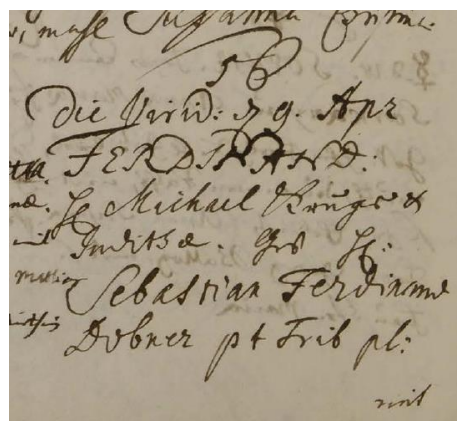 Susanna
56
die Virid: d 9. Apr
FERDINAND:
H Michael Kruger &
Judithæ. Gv H:
Sebastian Ferdinand
Dobner pt Trib pl: